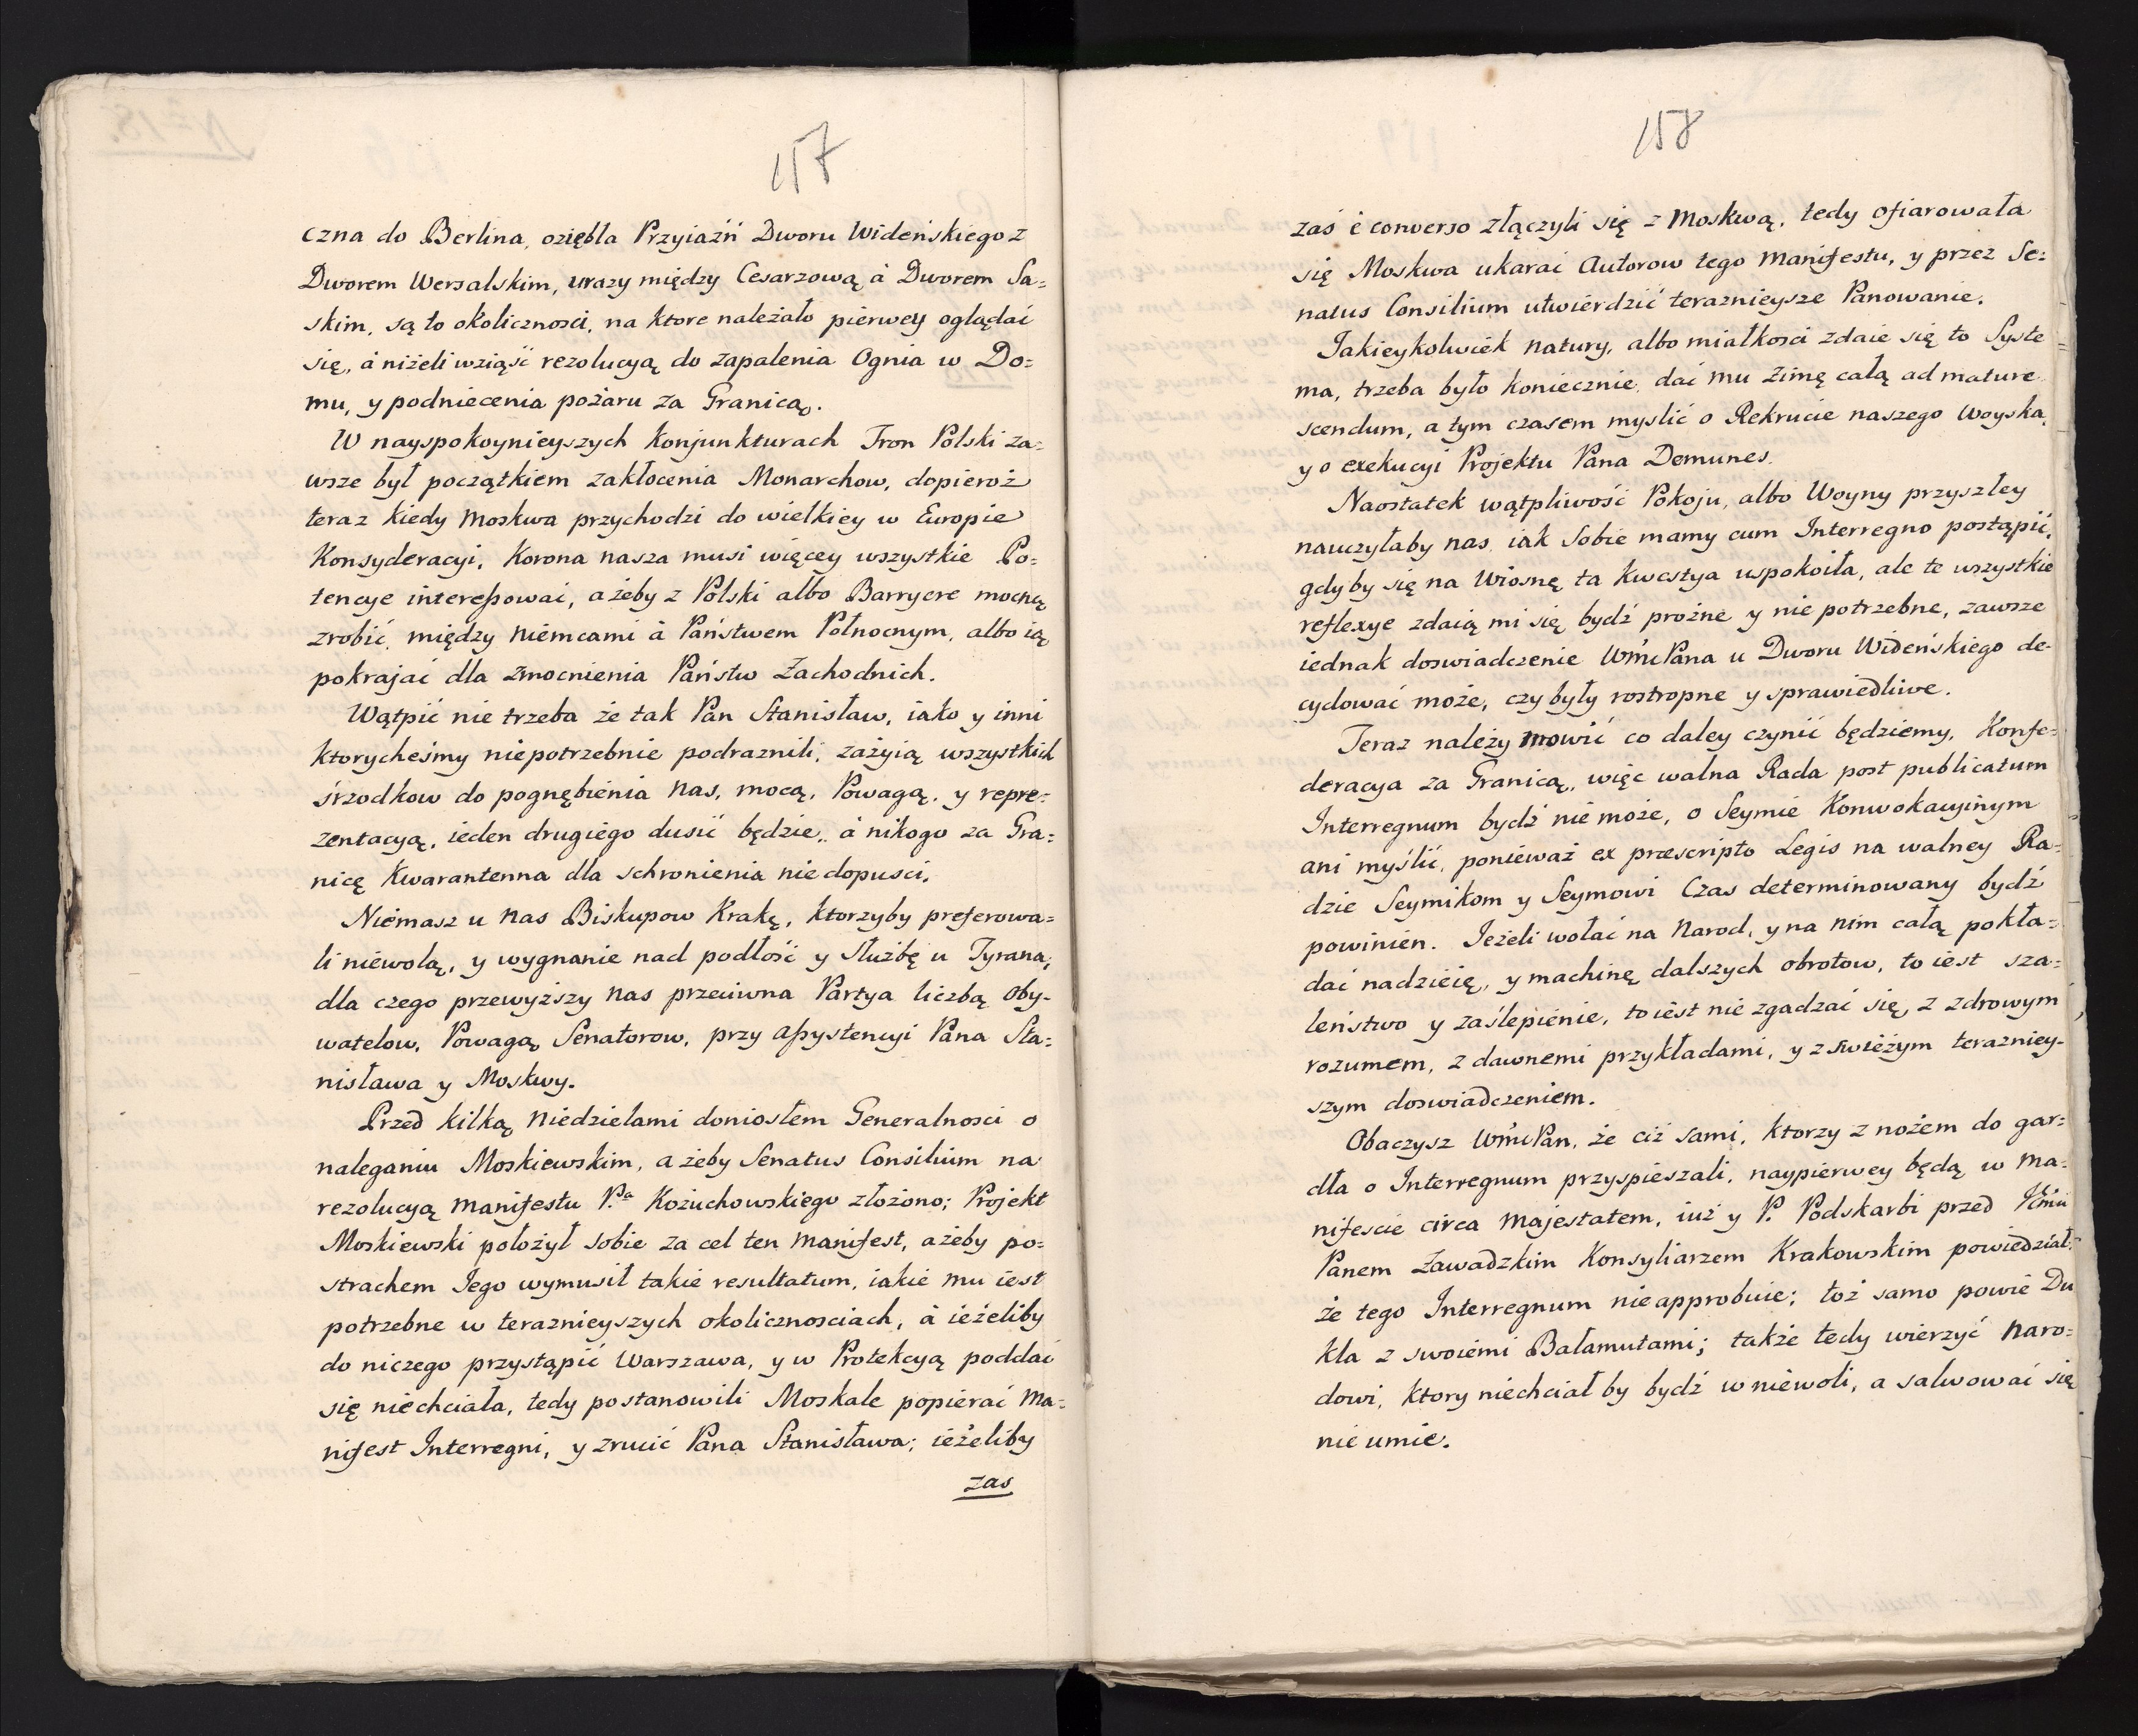 157
czna do Berlina, oziębła Przyiaźń Dworu Wideńskiego z
Dworem Wersalskim, urazy między Cesarzową, à Dworem Sa=
skim, są to okolicznosci, na ktore należało pierwey oglądać
się, à niżeli wziąść rezolucyą do zapalenia Ognia w Do=
mu, y podniecenia pożaru za Granicą.
W nayspokoynieyszych Konjunkturach Tron Polski za=
wsze był początkiem zakłocenia Monarchow, dopieroż
teraz kiedy Moskwa przychodzi do wielkiey w Europie
Konsyderacyi, Korona nasza musi więcey wszystkie Po=
tencye interessować, ażeby z Polski albo Barryere mocną
zrobić, między Niemcami à Państwem Połnocnym, albo ią
pokrajać dla zmocnienia Państw Zachodnich.
Wątpić nie trzeba że tak Pan Stanisław, iako y inni
ktorycheśmy niepotrzebnie podraznili, zażyią wszystkich
śrzodkow do pognębienia nas, mocą, Powagą, y repre=
zentacyą, ieden drugiego dusić będzie, à nikogo za Gra=
nicę Kwarantenna dla schronienia niedopusci.
Niemasz u nas Biskupow Krakę, ktorzyby preferowa=
li niewolą, y wygnanie nad podłość y Służbę u Tyrana,
dla czego przewyższy nas przeciwna Partya liczbą Oby=
watelow, Powagą Senatorow, przy assystencyi Pana Sta=
nisława y Moskwy.
Przed kilką Niedzielami doniosłem Generalnosci o
naleganiu Moskiewskim, ażeby Senatus Consilium na
rezolucyą Manifestu P.ª Kożuchowskiego złożono; Projekt
Moskiewski położył sobie za cel ten Manifest, ażeby po=
strachem Jego wymusił takie resultatum, iakie mu iest
potrzebne w teraznieyszych okolicznosciach, à ieżeliby
do niczego przystąpić Warszawa, y w Protekcyą poddać
się niechciała, tedy postanowili Moskale popierać Ma=
nifest Interregni, y zrucić Pana Stanisława; ieżeliby
zas
158
zaś è converso złączyli się z Moskwą, tedy ofiarowała
się Moskwa ukarać Autorow tego Manifestu, y przez Se=
natus Consilium utwierdzić teraznieysze Panowanie.
Jakieykolwiek natury, albo miałkosci zdaie się to Syste=
ma, trzeba było koniecznie dać mu Zimę całą ad mature
scendum, a tym czasem myslić o Rekrucie naszego Woyska,
y o exekucyi Projektu Pana Demunes.
Naostatek wątpliwość Pokoju, albo Woyny przyszłey
nauczyłaby nas iak Sobie mamy cum Interregno postąpić,
gdyby się na Wiosnę ta Kwestya uspokoiła, ale te wszystkie
reflexye zdaią mi się bydź prożne y nie potrzebne, zawsze
iednak doswiadczenie WmćPana u Dworu Wideńskiego de=
cydować może, czy były rostropne y sprawiedliwe.
Teraz należy mowić co daley czynić będziemy, Konfe=
deracya za Granicą, więc walna Rada post publicatum
Interregnum bydź nie może, o Seymie Konwokacyinym
ani myślić, ponieważ ex præscripto Legis na walney Ra=
dzie Seymikom y Seymowi Czas determinowany bydź
powinien. Jeżeli wołać na Narod, y na nim całą pokła=
dać nadzieię, y machinę dalszych obrotow, to iest sza=
leństwo y zaślepienie, to iest nie zgadzać się, z zdrowym
rozumem, z dawnemi przykładami, y z swieżym terazniey=
szym doswiadczeniem.
Obaczysz WmćPan, że ciż sami, ktorzy z nożem do gar=
dła o Interregnum przyspieszali, naypierwey będą w Ma=
nifescie circa Majestatem, iuż y P. Podskarbi przed Jćmć
Panem Zawadzkim Konsyliarzem Krakowskim powiedział,
że tego Interregnum nieapprobuie; toż samo powie Du
kla z swoiemi Bałamutami; także tedy wierzyć Naro=
dowi, ktory niechciał by bydź w niewoli, a salwować się
nie umie.